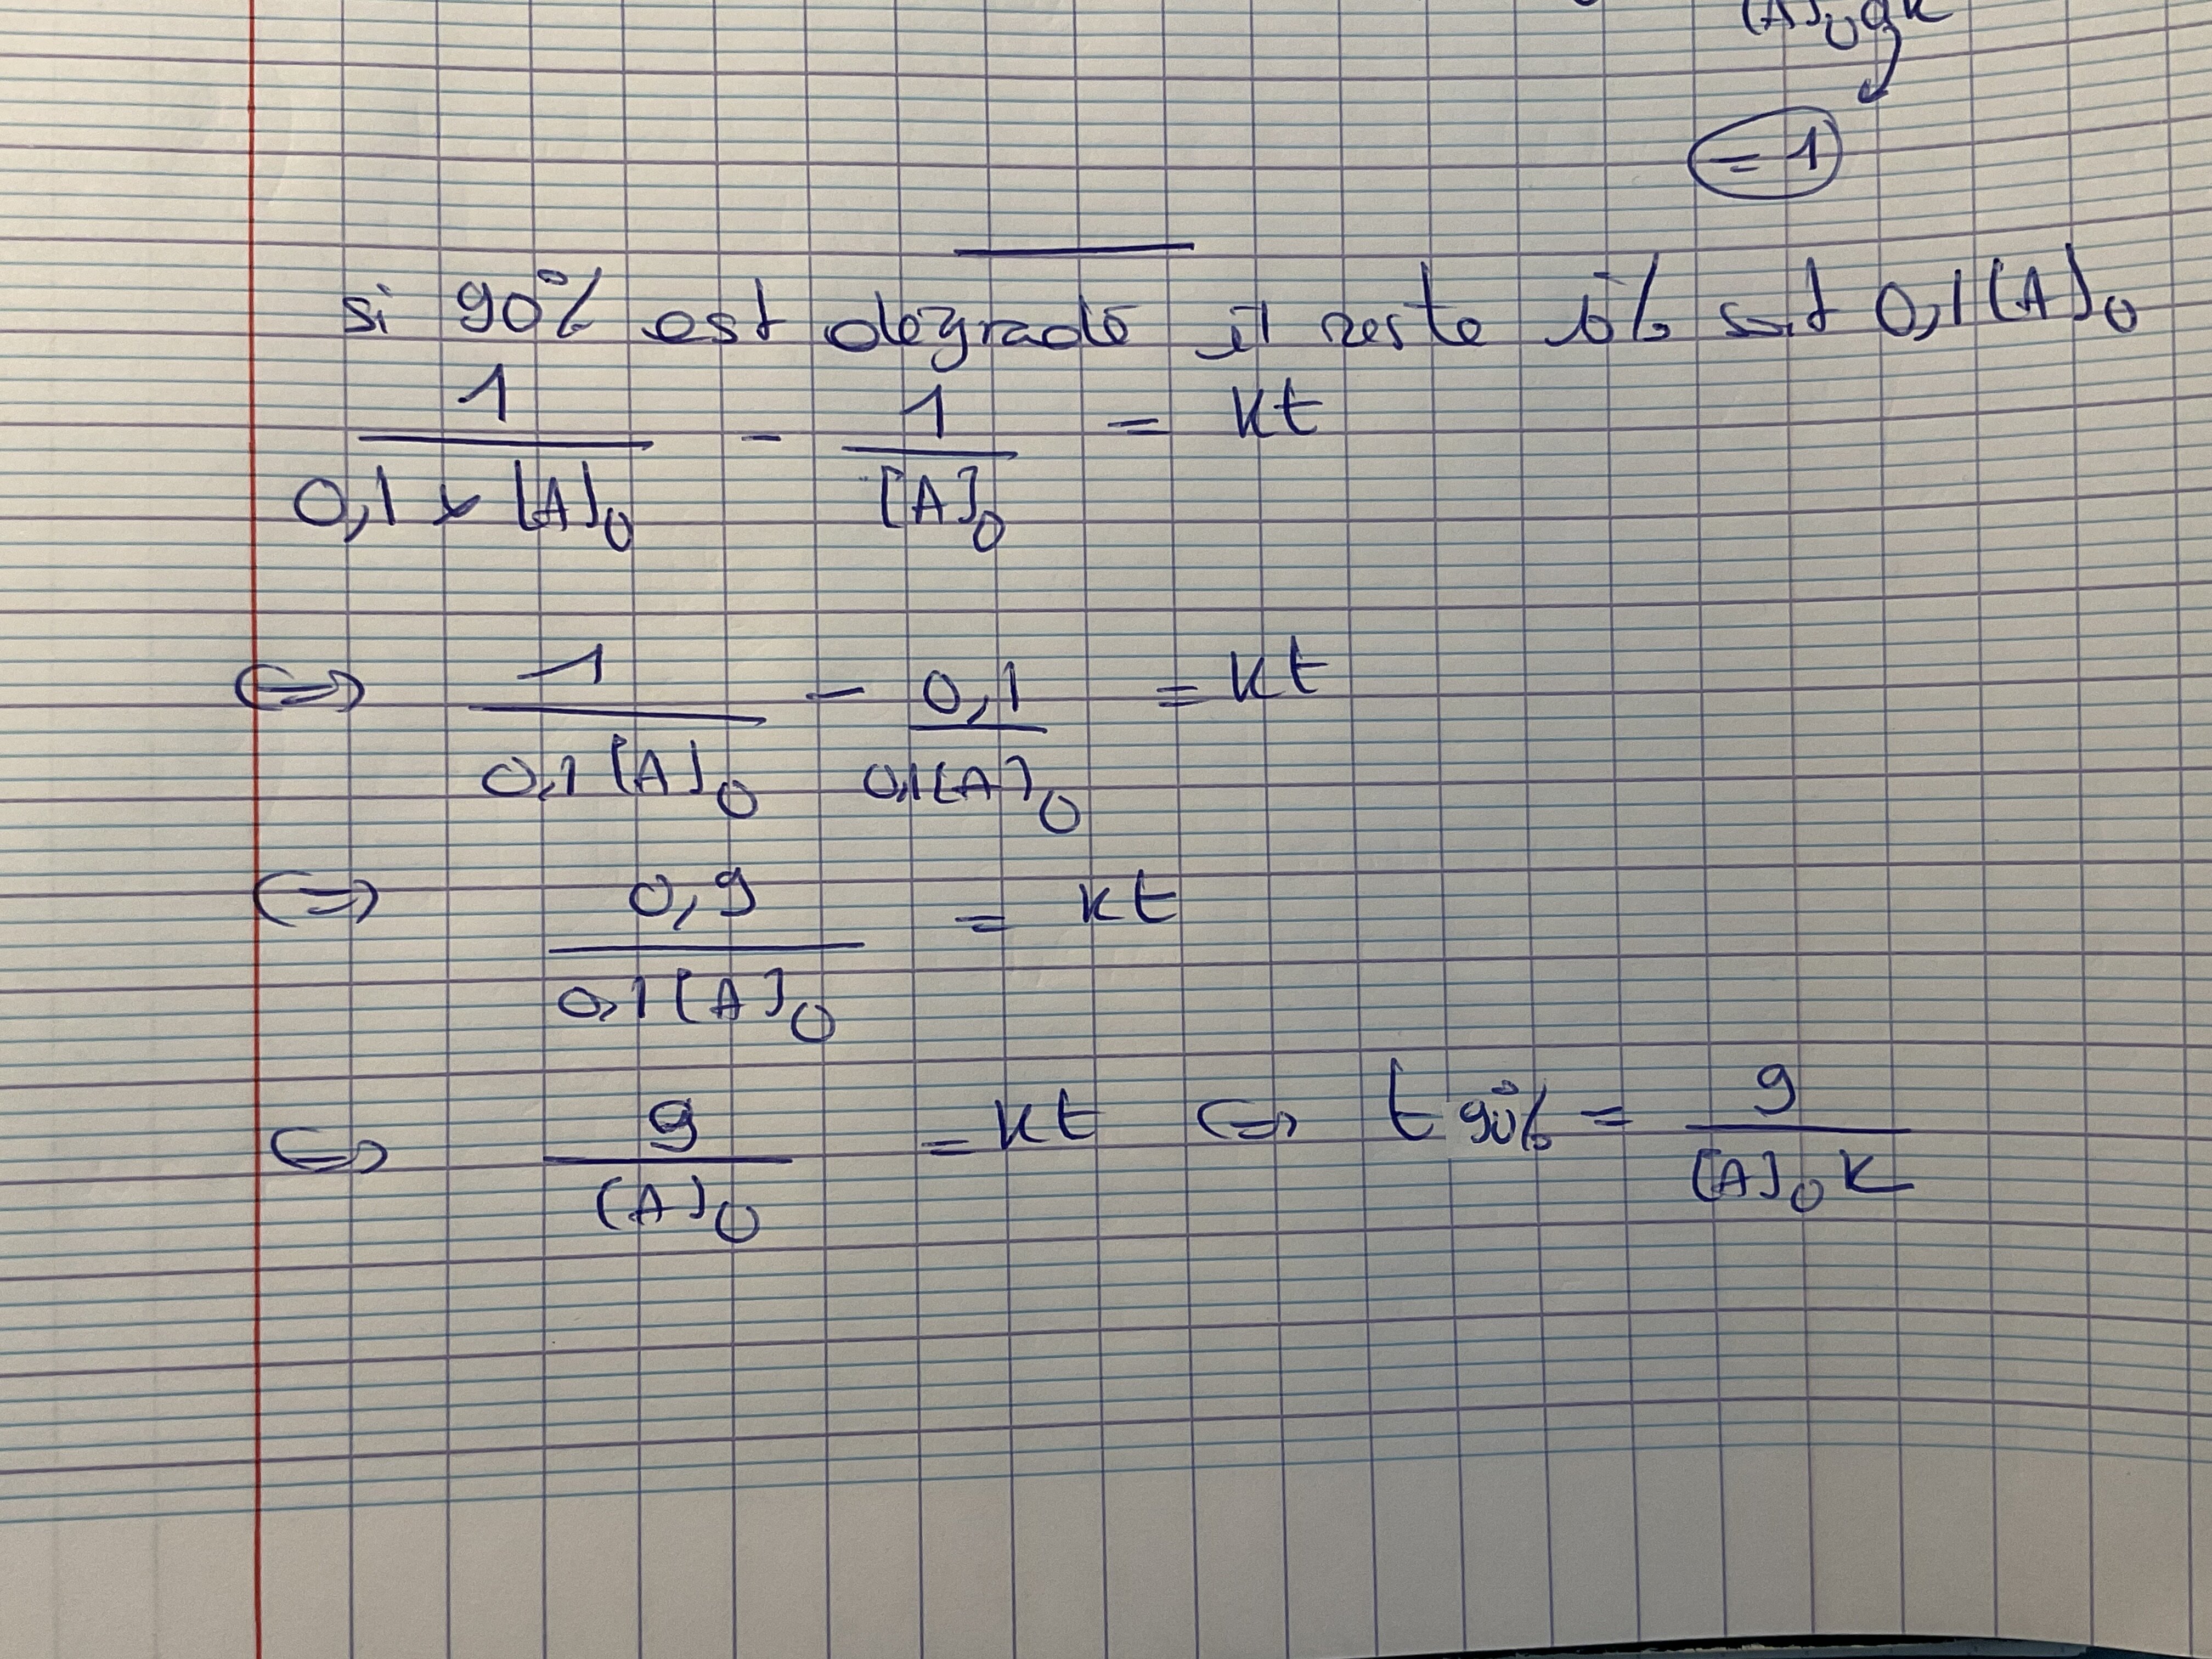 [A]₀ak
= 1
si 90% est dégradé il reste 10% soit 0,1[A]₀
1/(0,1 × [A]₀) - 1/[A]₀ = kt
⇔ 1/(0,1[A]₀) - 0,1/(0,1[A]₀) = kt
⇔ 0,9/(0,1[A]₀) = kt
⇔ 9/[A]₀ = kt ⇔ t90% = 9/([A]₀ k)